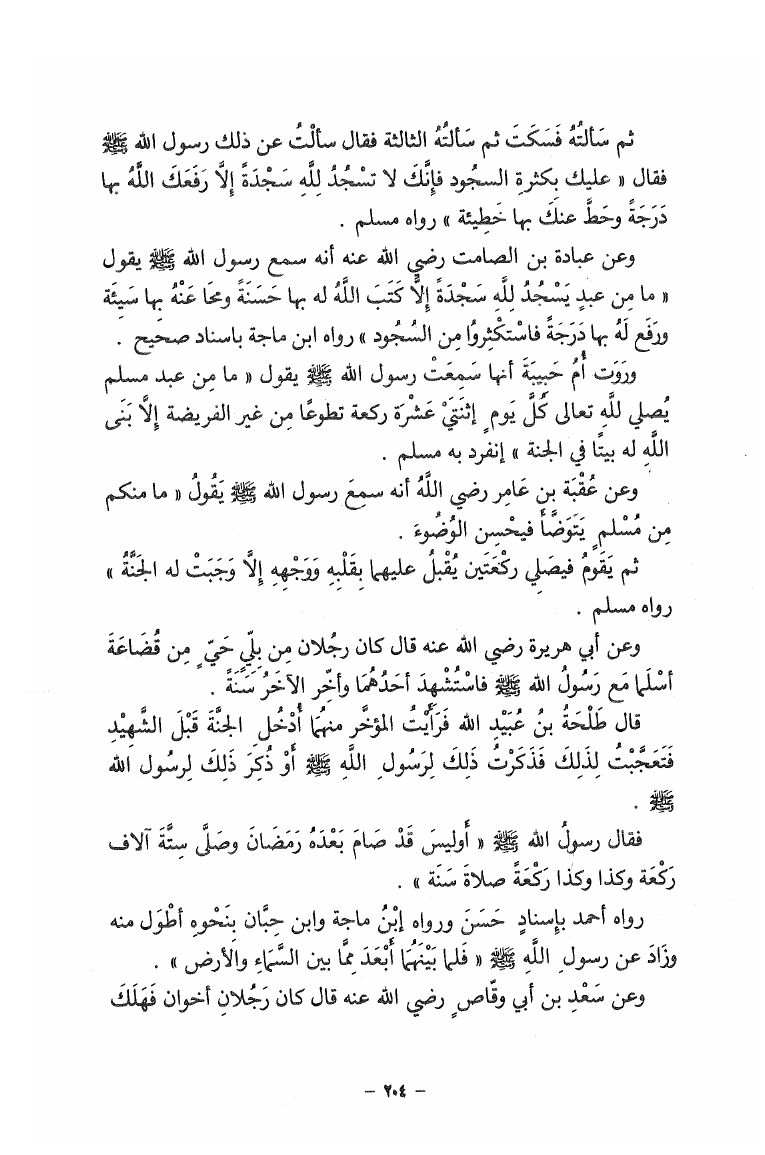 ثم سَألتُهُ فَسَكَتَ ثم سَألتُهُ الثالثة فقال سألْتُ عن ذلك رسول الله ﷺ
فقال « عليك بكثرةِ السجُود فإنَّكَ لا تسْجُدُ لِلَّهِ سَجْدَةً إلَّا رَفَعَكَ اللَّهُ بها
دَرَجَةً وحَطَّ عنكَ بها خَطِيئة » رواه مسلم .
وعن عبادة بن الصامت رضي الله عنه أنه سمع رسول الله ﷺ يقول
« ما مِن عبدٍ يَسْجُدُ لِلَّهِ سَجْدَةً إلَّا كَتَبَ اللَّهُ له بها حَسَنَةً ومحَا عَنْهُ بها سَيِئَة
ورَفَع لَهُ بها دَرَجَةً فاسْتكْثِروُا مِن السُجُود » رواه ابن ماجة باسناد صحيح .
ورَوَت أُم حَبِيبَةَ أنها سَمِعَتْ رسول الله ﷺ يقول « ما مِن عبد مسلم
يُصلي للَّهِ تعالى كُلَّ يَومٍ إثنَتَيْ عَشْرَة ركعة تطوعًا مِن غير الفريضة إلَّا بَنَى
اللَّه له بيتًا في الجنة » إنفرد به مسلم .
وعن عُقْبَة بن عَامِر رضي اللَّهُ أنه سمعَ رسول الله ﷺ يَقُولُ « ما منكم
مِن مُسْلمٍ يَتَوَضَّأَ فيحْسِن الوُضُوءَ .
ثم يَقَومُ فيصَلي ركْعَتَين يُقْبلُ عليهما بِقَلْبِهِ وَوَجْهِهِ إلَّا وَجَبَتْ له الجَنَّةُ »
رواه مسلم .
وعن أبي هريرة رضي الله عنه قال كان رجُلان مِن بِلِّي حَيّ مِن قُضَاعَةَ
أسْلَما مَع رَسُولُ الله ﷺ فاسْتُشْهِدَ أحَدُهُمَا وأخِّر الآخَرُ سَنَةً .
قال طَلْحَةُ بنُ عُبَيْدِ الله فَرَأَيْتُ المؤخَّر منهُمَا أُدْخُل الجَنَّةَ قَبْلَ الشَّهِيْدِ
فَتَعَجَّبْتُ لِذَلِكَ فَذَكَرْتُ ذَلِكَ لِرَسُولِ اللَّهِ ﷺ أَوْ ذُكِرَ ذَلِكَ لِرسُول الله
ﷺ .
فقال رسولُ الله ﷺ « أَوليسَ قَدْ صَامَ بَعْدَهُ رَمَضَانَ وصَلَّى سِتَّةَ آلاف
رَكْعَة وكذا وكذا رَكْعَةً صلاةَ سَنَة » .
رواه أحمد بإسنادٍ حَسَنَ ورواه إبْنُ ماجة وابن حِبَّان بنَحْوهِ أطْوَل منه
وزَادَ عن رسول اللَّهِ ﷺ « فَلما بَيْنَهُمَا أَبْعَدَ مِمَّا بين السَّمَاءِ والأرض » .
وعن سَعْدِ بن أبي وقَّاصٍ رضي الله عنه قال كان رَجُلانِ أخوان فَهَلَكَ
– ٢٠٤ –